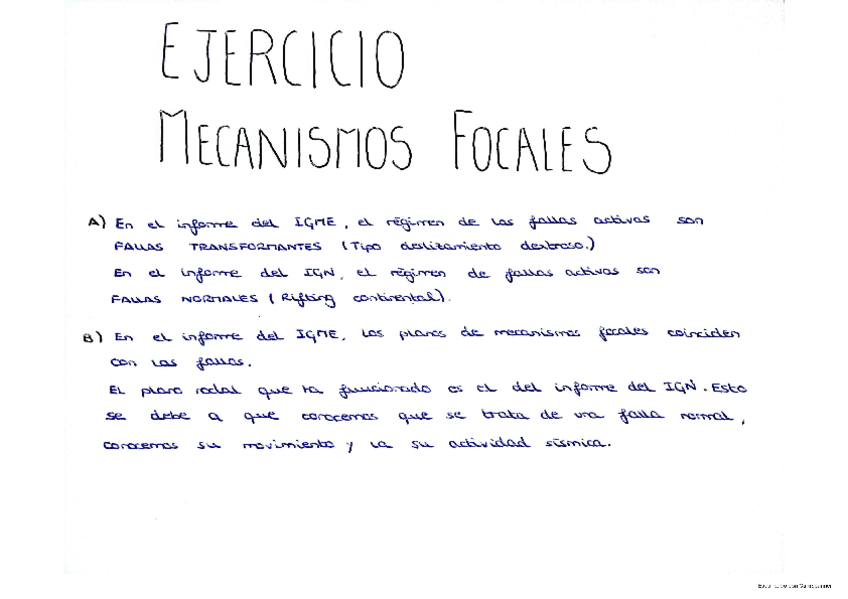 EJERCICIO
MECANISMOS FOCALES
A) En el informe del IGME, el régimen de las fallas activas son
FALLAS TRANSFORMANTES (Tipo deslizamiento dextroso.)
En el informe del IGN, el régimen de fallas activas son
FALLAS NORMALES (Rifting continental).
B) En el informe del IGME, los planos de mecanismos focales coinciden
con las fallas.
El plano nodal que ha funcionado es el del informe del IGN. Esto
se debe a que conocemos que se trata de una falla normal,
conocemos su movimiento y la su actividad sísmica.